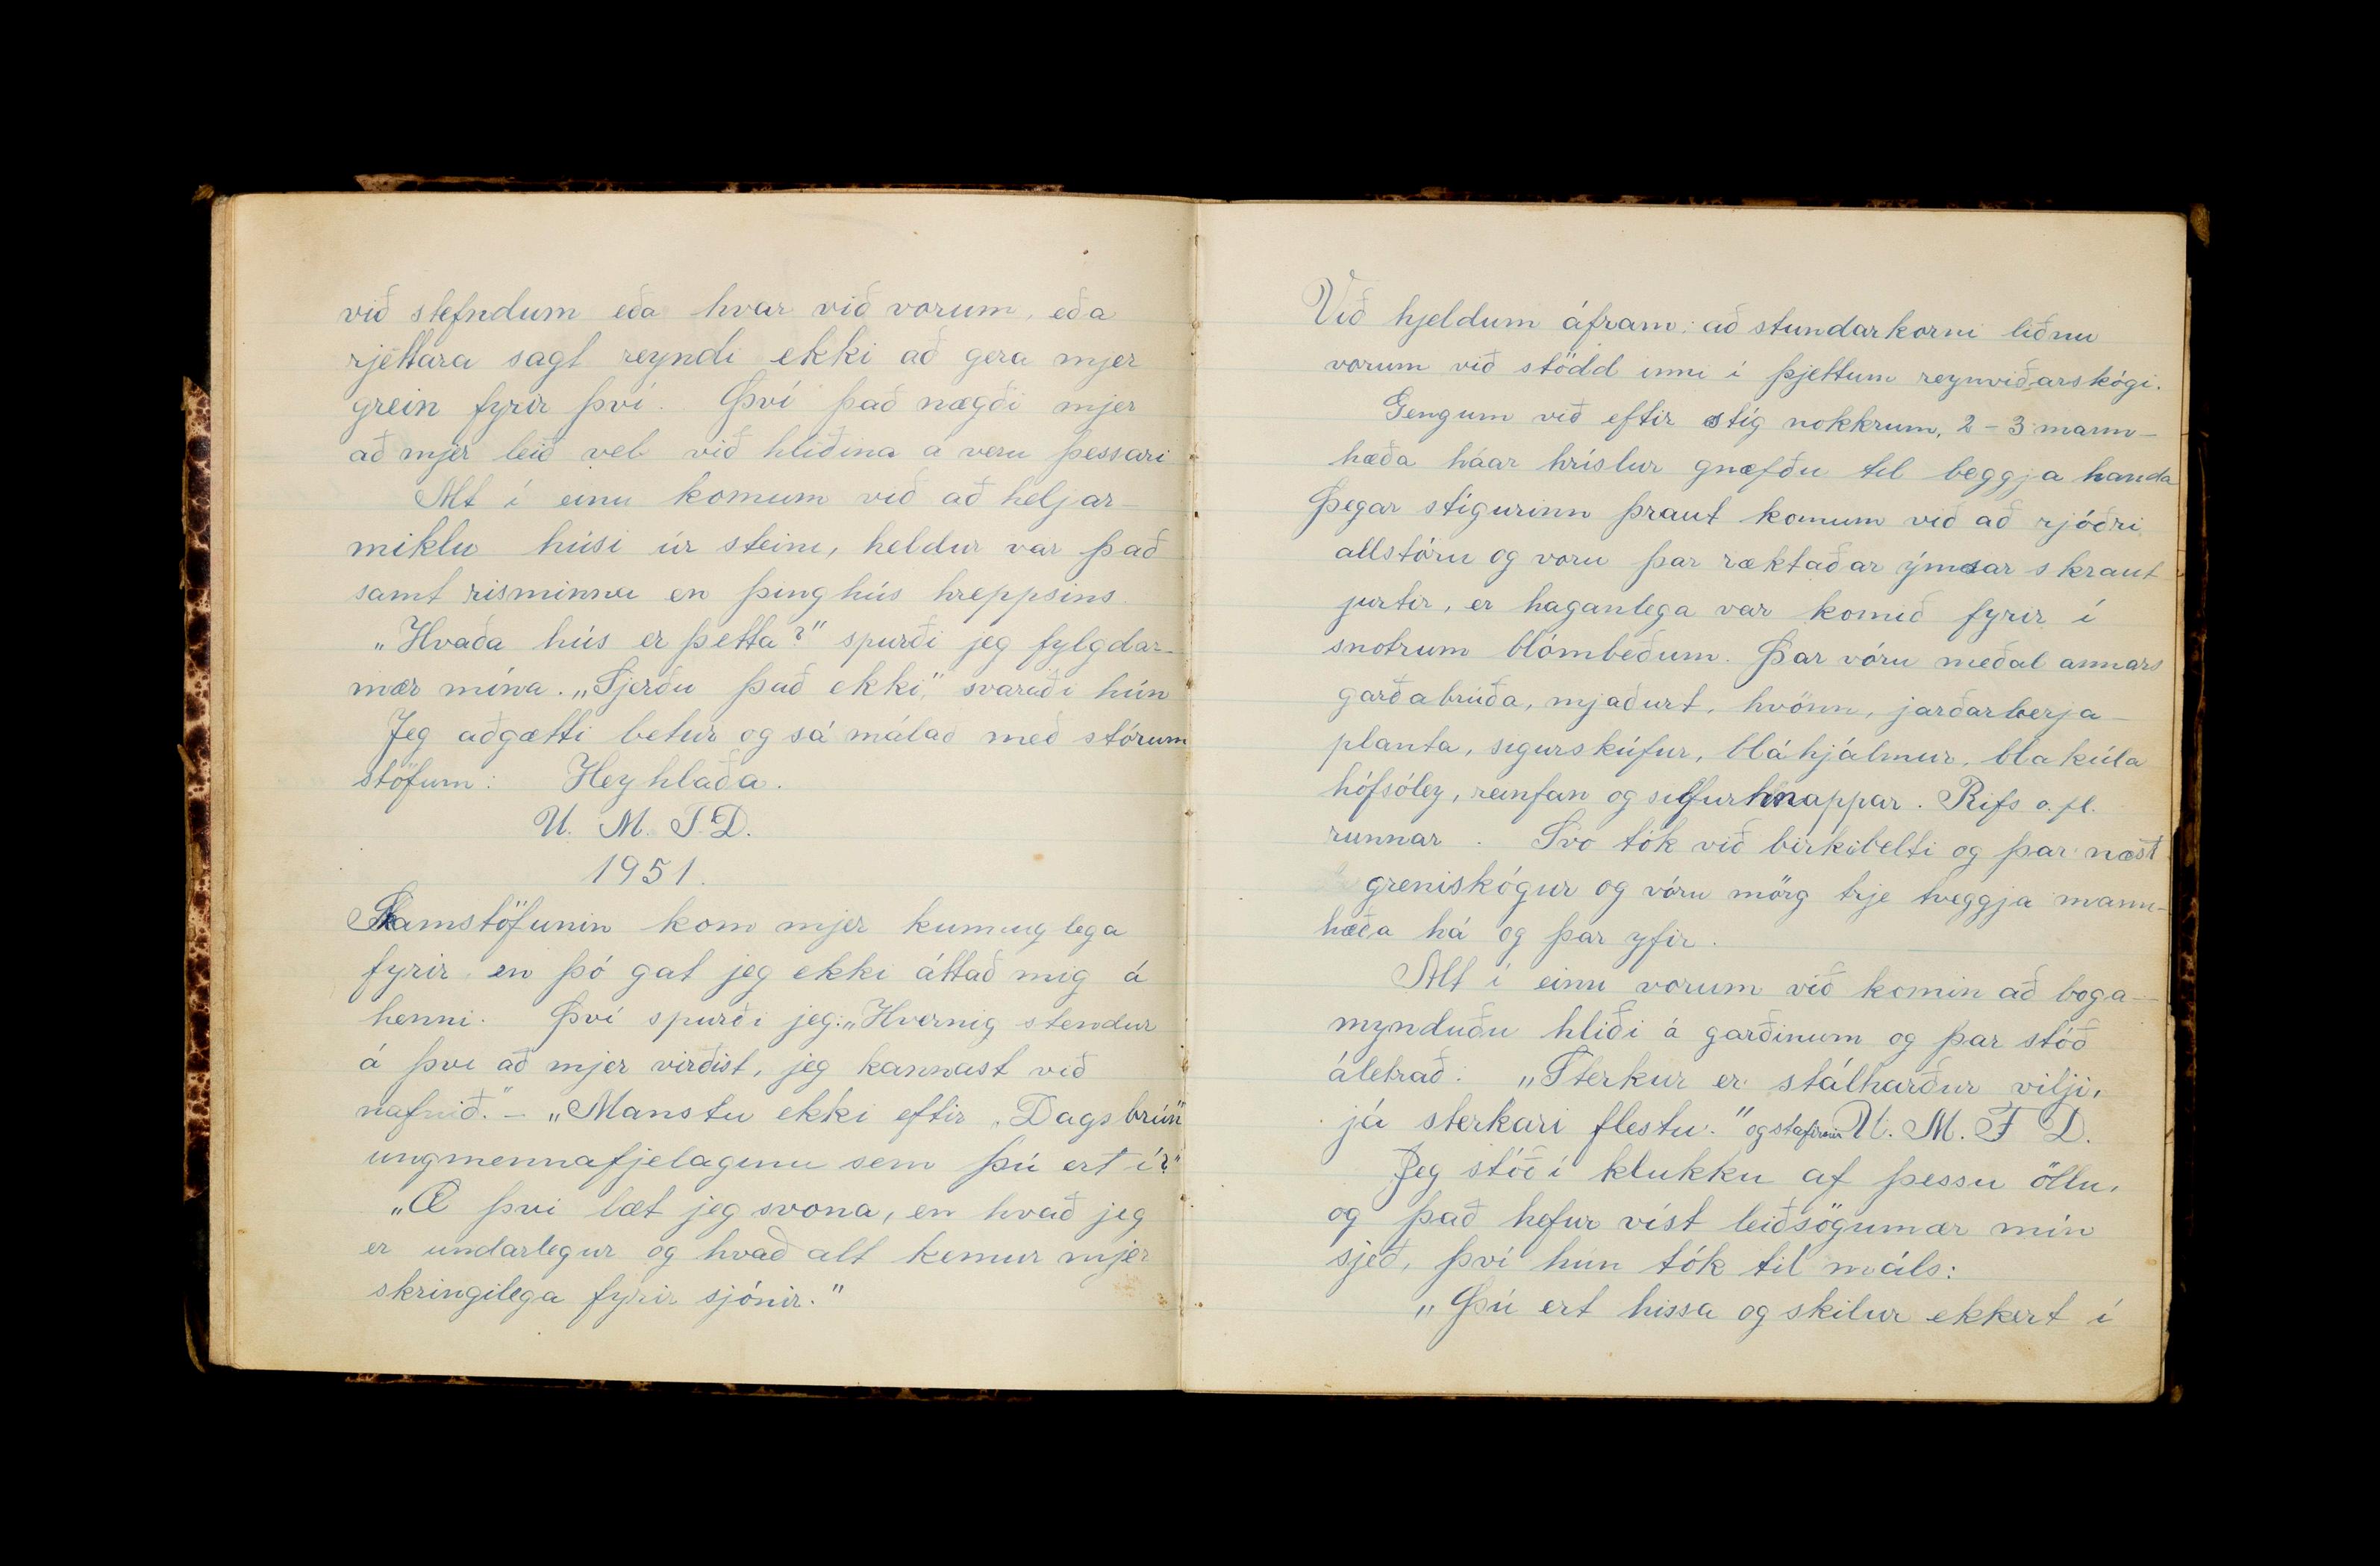 við stefndum eða hvar við vorum, eða
rjettara sagt reyndi ekki að gera mjer
grein fyrir því. Því það nægði mjer
að mjer leið vel við hliðina á veru þessari
Alt í einu komum við að heljar-
miklu húsi úr steini, heldur var það
samt risminna en þinghús hreppsins.
„Hvaða hús er þetta?" spurði jeg fylgdar-
mær mína. „Sjerðu það ekki," svaraði hún
Jeg aðgætti betur og sá málað með stórum
stöfum: Heyhlaða.
U. M. F. D.
1951.
Skamstöfunin kom mjer kunnuglega
fyrir en þó gat jeg ekki áttað mig á
henni. Því spurði jeg: „Hvernig stendur
á því að mjer virðist, jeg kannast við
nafnið." – „Manstu ekki eftir „Dagsbrún"
ungmennafjelaginu sem þú ert í?"
„Æ því læt jeg svona, en hvað jeg
er undarlegur og hvað alt kemur mjer
skringilega fyrir sjónir."
Við hjeldum áfram; að stundarkorni liðnu
vorum við stödd inni í þjettum reynviðarskógi.
Gengum við eftir stíg nokkrum, 2-3 mann-
hæða háar hríslur gnæfðu til beggja handa
Þegar stígurinn þraut komum við að rjóðri
allstóru og voru þar ræktaðar ýmsar skraut
jurtir, er haganlega var komið fyrir í
snotrum blómbeðum. Þar vóru meðal annars
garðabrúða, mjaðurt, hvönn, jarðarberja-
planta, sigurskúfur, bláhjálmur, blákúla
hófsóley, reinfan og silfurhnappar. Rifs o.fl.
runnar. Svo tók við birkibelti og þar næst
greniskógur og vóru mörg trje tveggja mann-
hæða há og þar yfir.
Alt í einu vorum við komin að boga-
mynduðu hliði á garðinum og þar stóð
áletrað: „Sterkur er stálharður vilji,
já sterkari flestu." og stafirnir U. M. F. D.
Jeg stóð í klukku af þessu öllu,
og það hefur víst leiðsögumær mín
sjeð, því hún tók til máls:
„Þú ert hissa og skilur ekkert í